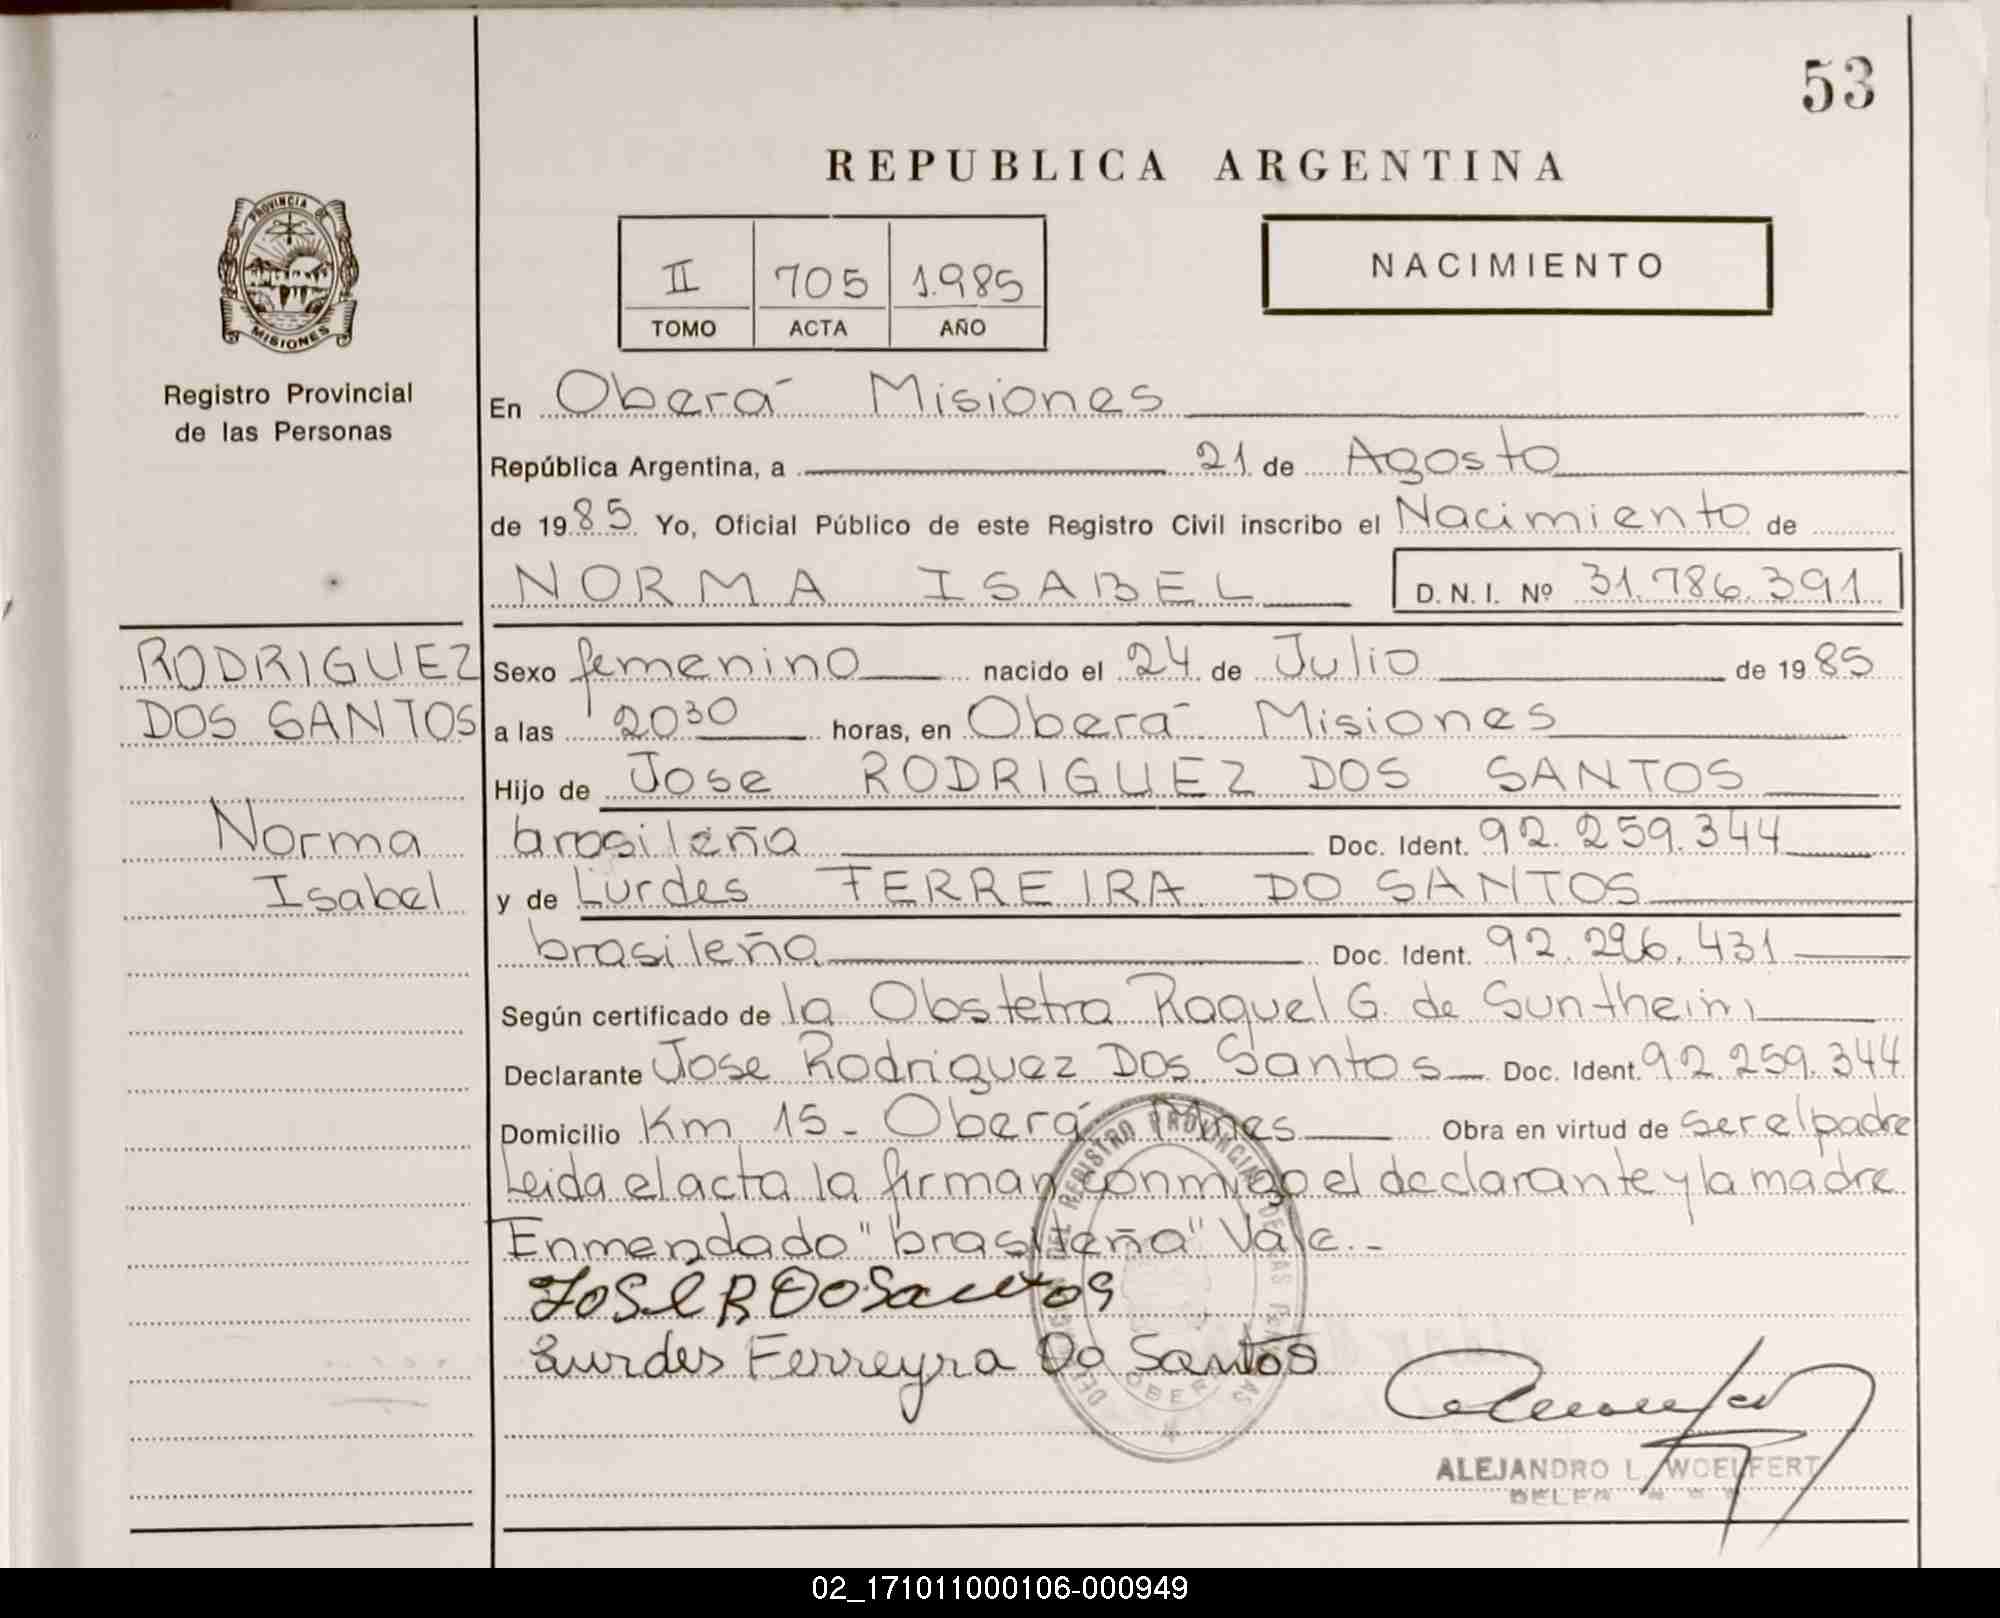 53
REPUBLICA ARGENTINA
PROVINCIA DE
MISIONES
II 705 1.985
TOMO ACTA AÑO
NACIMIENTO
Registro Provincial
de las Personas
En Oberá Misiones
República Argentina, a 21 de Agosto
de 1985 Yo, Oficial Público de este Registro Civil inscribo el Nacimiento de
NORMA ISABEL D. N. I. Nº 31.786.391
RODRIGUEZ
DOS SANTOS
Norma
Isabel
Sexo femenino nacido el 24 de Julio de 1985
a las 20 30 horas, en Oberá Misiones
Hijo de Jose RODRIGUEZ DOS SANTOS
brasileña Doc. Ident. 92.259.344
y de Lurdes FERREIRA DO SANTOS
brasileña Doc. Ident. 92.296.431
Según certificado de la Obstetra Raquel G. de Suntheim
Declarante Jose Rodriguez Dos Santos Doc. Ident. 92.259.344
Domicilio Km 15 - Oberá Mnes Obra en virtud de ser el padre
Leida el acta la firman conmigo el declarante y la madre
Enmendado "brasileña" Vale.-
José R Do Santos
Lurdes Ferreyra Do Santos
DEL REGISTRO PROVINCIAL DE LAS PERSONAS
OBERA
ALEJANDRO L. WOELFERT
02_171011000106-000949